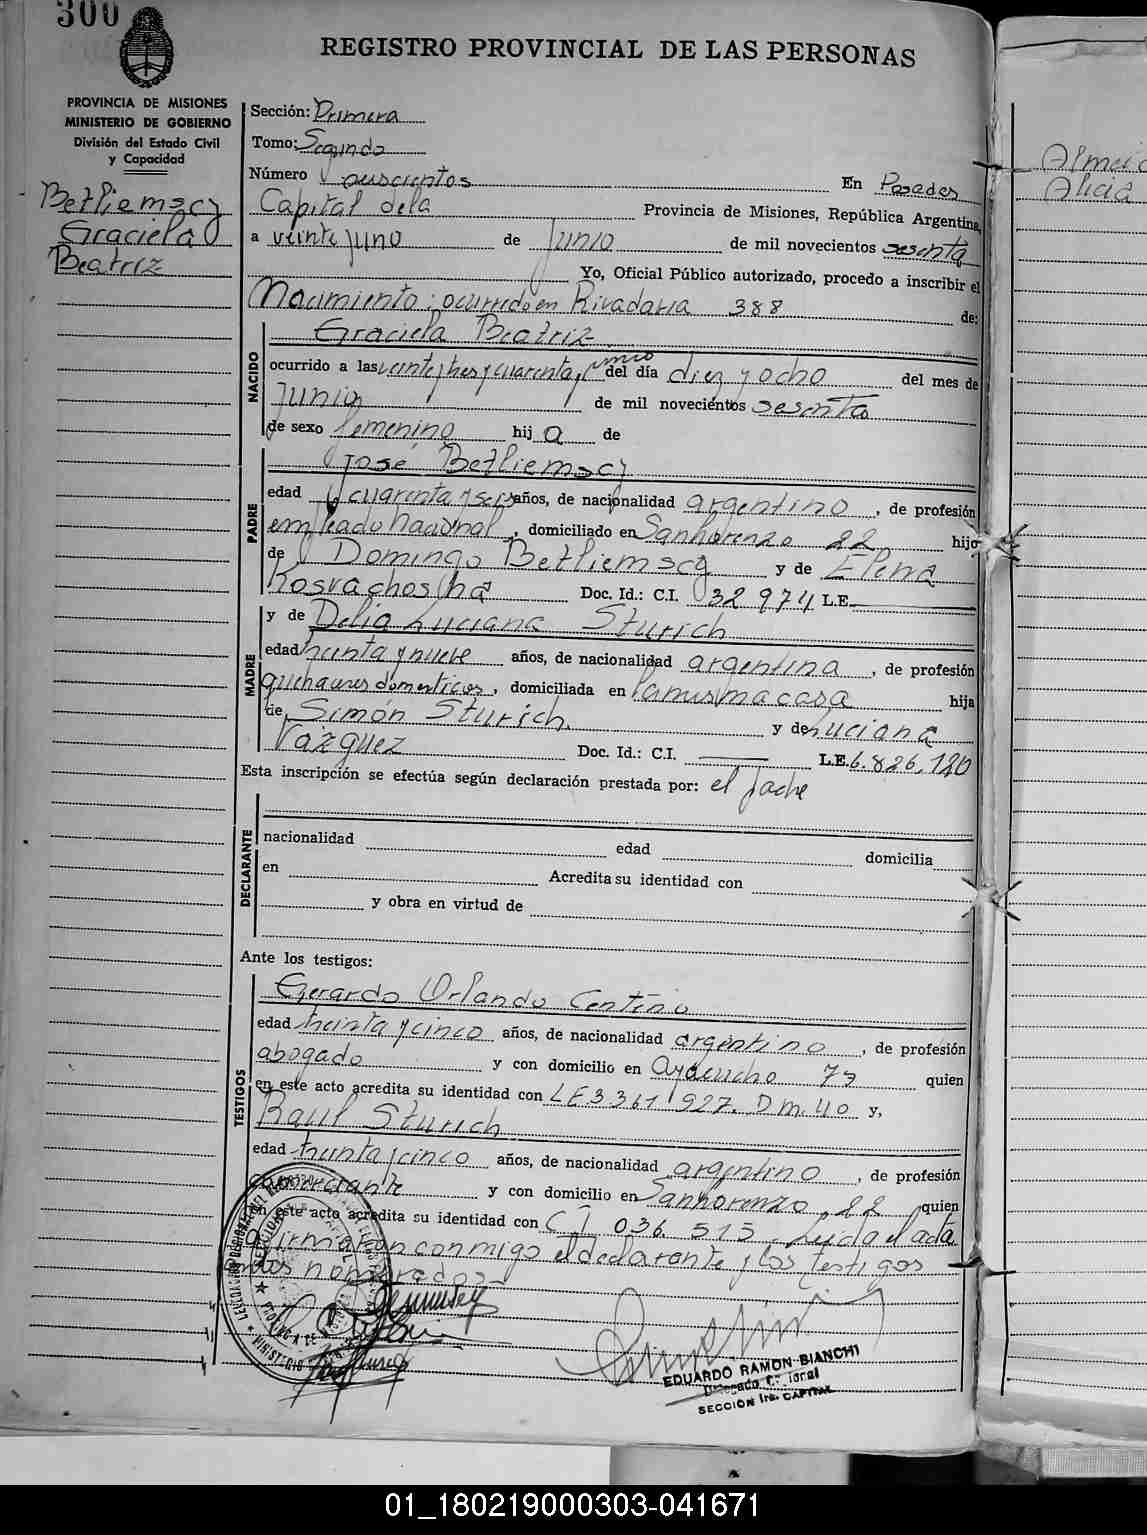 300
REGISTRO PROVINCIAL DE LAS PERSONAS
PROVINCIA DE MISIONES
MINISTERIO DE GOBIERNO
División del Estado Civil
y Capacidad
Betliemscy
Graciela
Beatriz
Sección: Primera
Tomo: Segundo
Número En Posadas
Capital dela Provincia de Misiones, República Argentina,
a veinte juno de Junio de mil novecientos sesenta
Yo, Oficial Público autorizado, procedo a inscribir el
Nacimiento: ocurrido en Rivadavia 388 de:
Graciela Beatriz
NACIDO
ocurrido a las veinte y tres y cuarenta y cinco del día diez y ocho del mes de
Junio de mil novecientos sesenta
de sexo femenino hij a de
PADRE
José Betliemscy
edad cuarenta y seis años, de nacionalidad argentino, de profesión
empleado nacional, domiciliado en San Lorenzo 22 hijo
de Domingo Betliemscy y de Elena
Doc. Id.: C.I. 32 974 L.E.
MADRE
y de Delia Luciana Sturich
edad treinta y nueve años, de nacionalidad argentina, de profesión
quehaceres domesticos, domiciliada en la misma casa hija
de Simón Sturich y de Luciana
Vazquez Doc. Id.: C.I. L.E. 6.826.120
Esta inscripción se efectúa según declaración prestada por: el padre
DECLARANTE
nacionalidad edad domicilia
en Acredita su identidad con
y obra en virtud de
Ante los testigos:
TESTIGOS
Gerardo Orlando Centeno
edad treinta y cinco años, de nacionalidad argentino, de profesión
abogado y con domicilio en Ayacucho 77 quien
en este acto acredita su identidad con LE 3361927. D m. 40 y,
Raul Sturich
edad treinta y cinco años, de nacionalidad argentino, de profesión
comerciante y con domicilio en San Lorenzo 22 quien
en este acto acredita su identidad con C I 036.515. Leida el acta
la firmaran conmigo el declarante y los testigos
antes nombrados
EDUARDO RAMON BIANCHI
SECCION 1ra. CAPITAL
Alicia
01_180219000303-041671